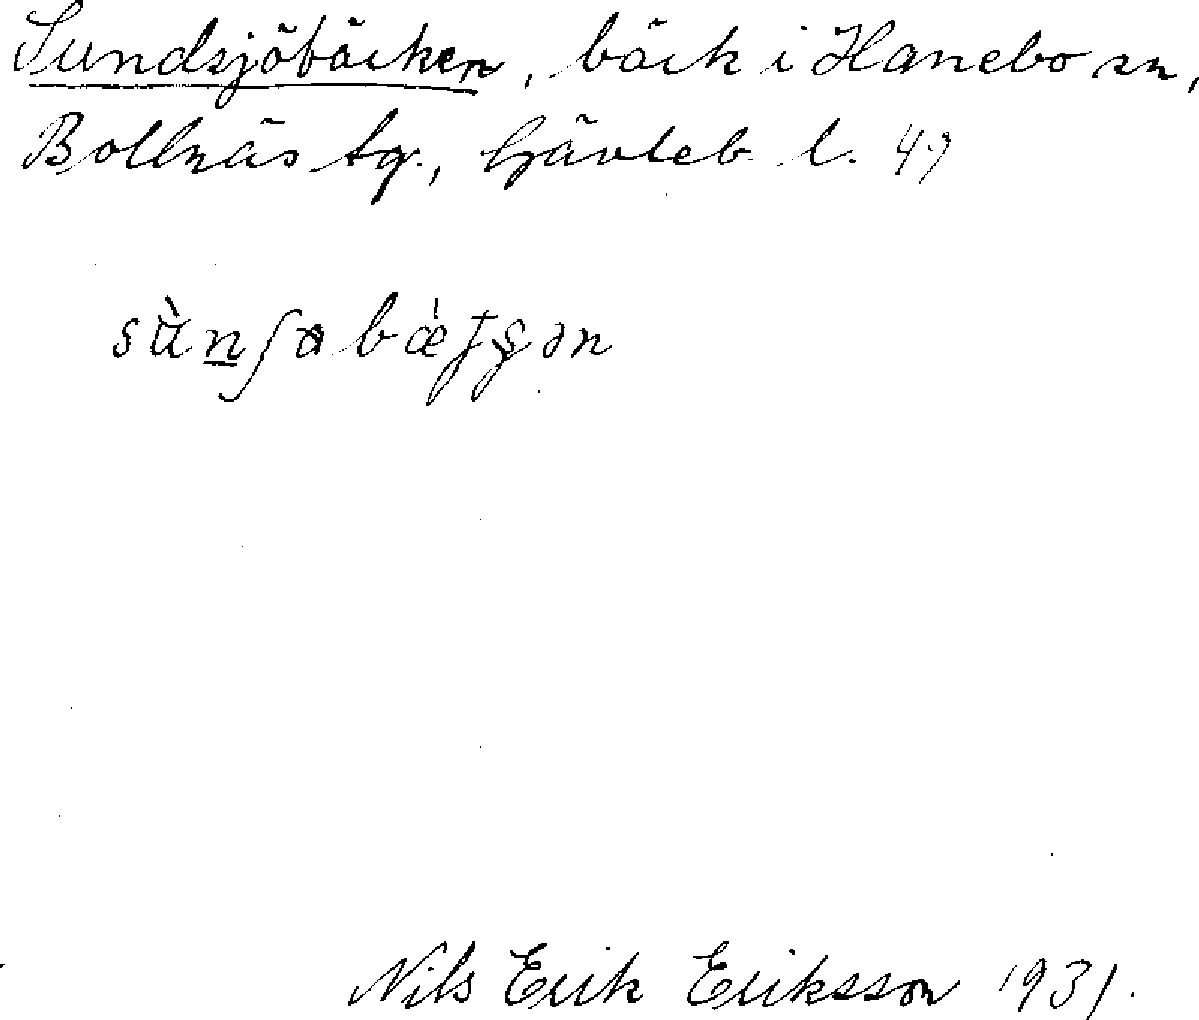 Sundsjöbäcken, bäck i Hanebo sn,
Bollnäs tg., Gävleb. l. 49
Nils Erik Eriksson 1931.